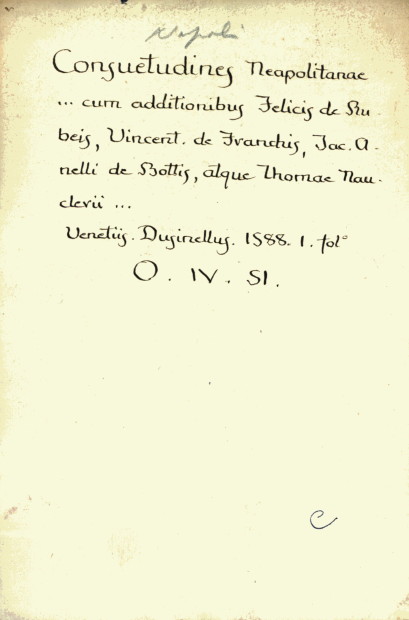 Napoli
Consuetudines Neapolitanae
... cum additionibus Felicis de Ru-
beis, Vincent. de Franchis, Jac. A-
nelli de Bottis, atque Thomae Nau-
clerii ...
Venetiis. Dusinellus. 1588. 1. fol°
O. IV. 51.
C